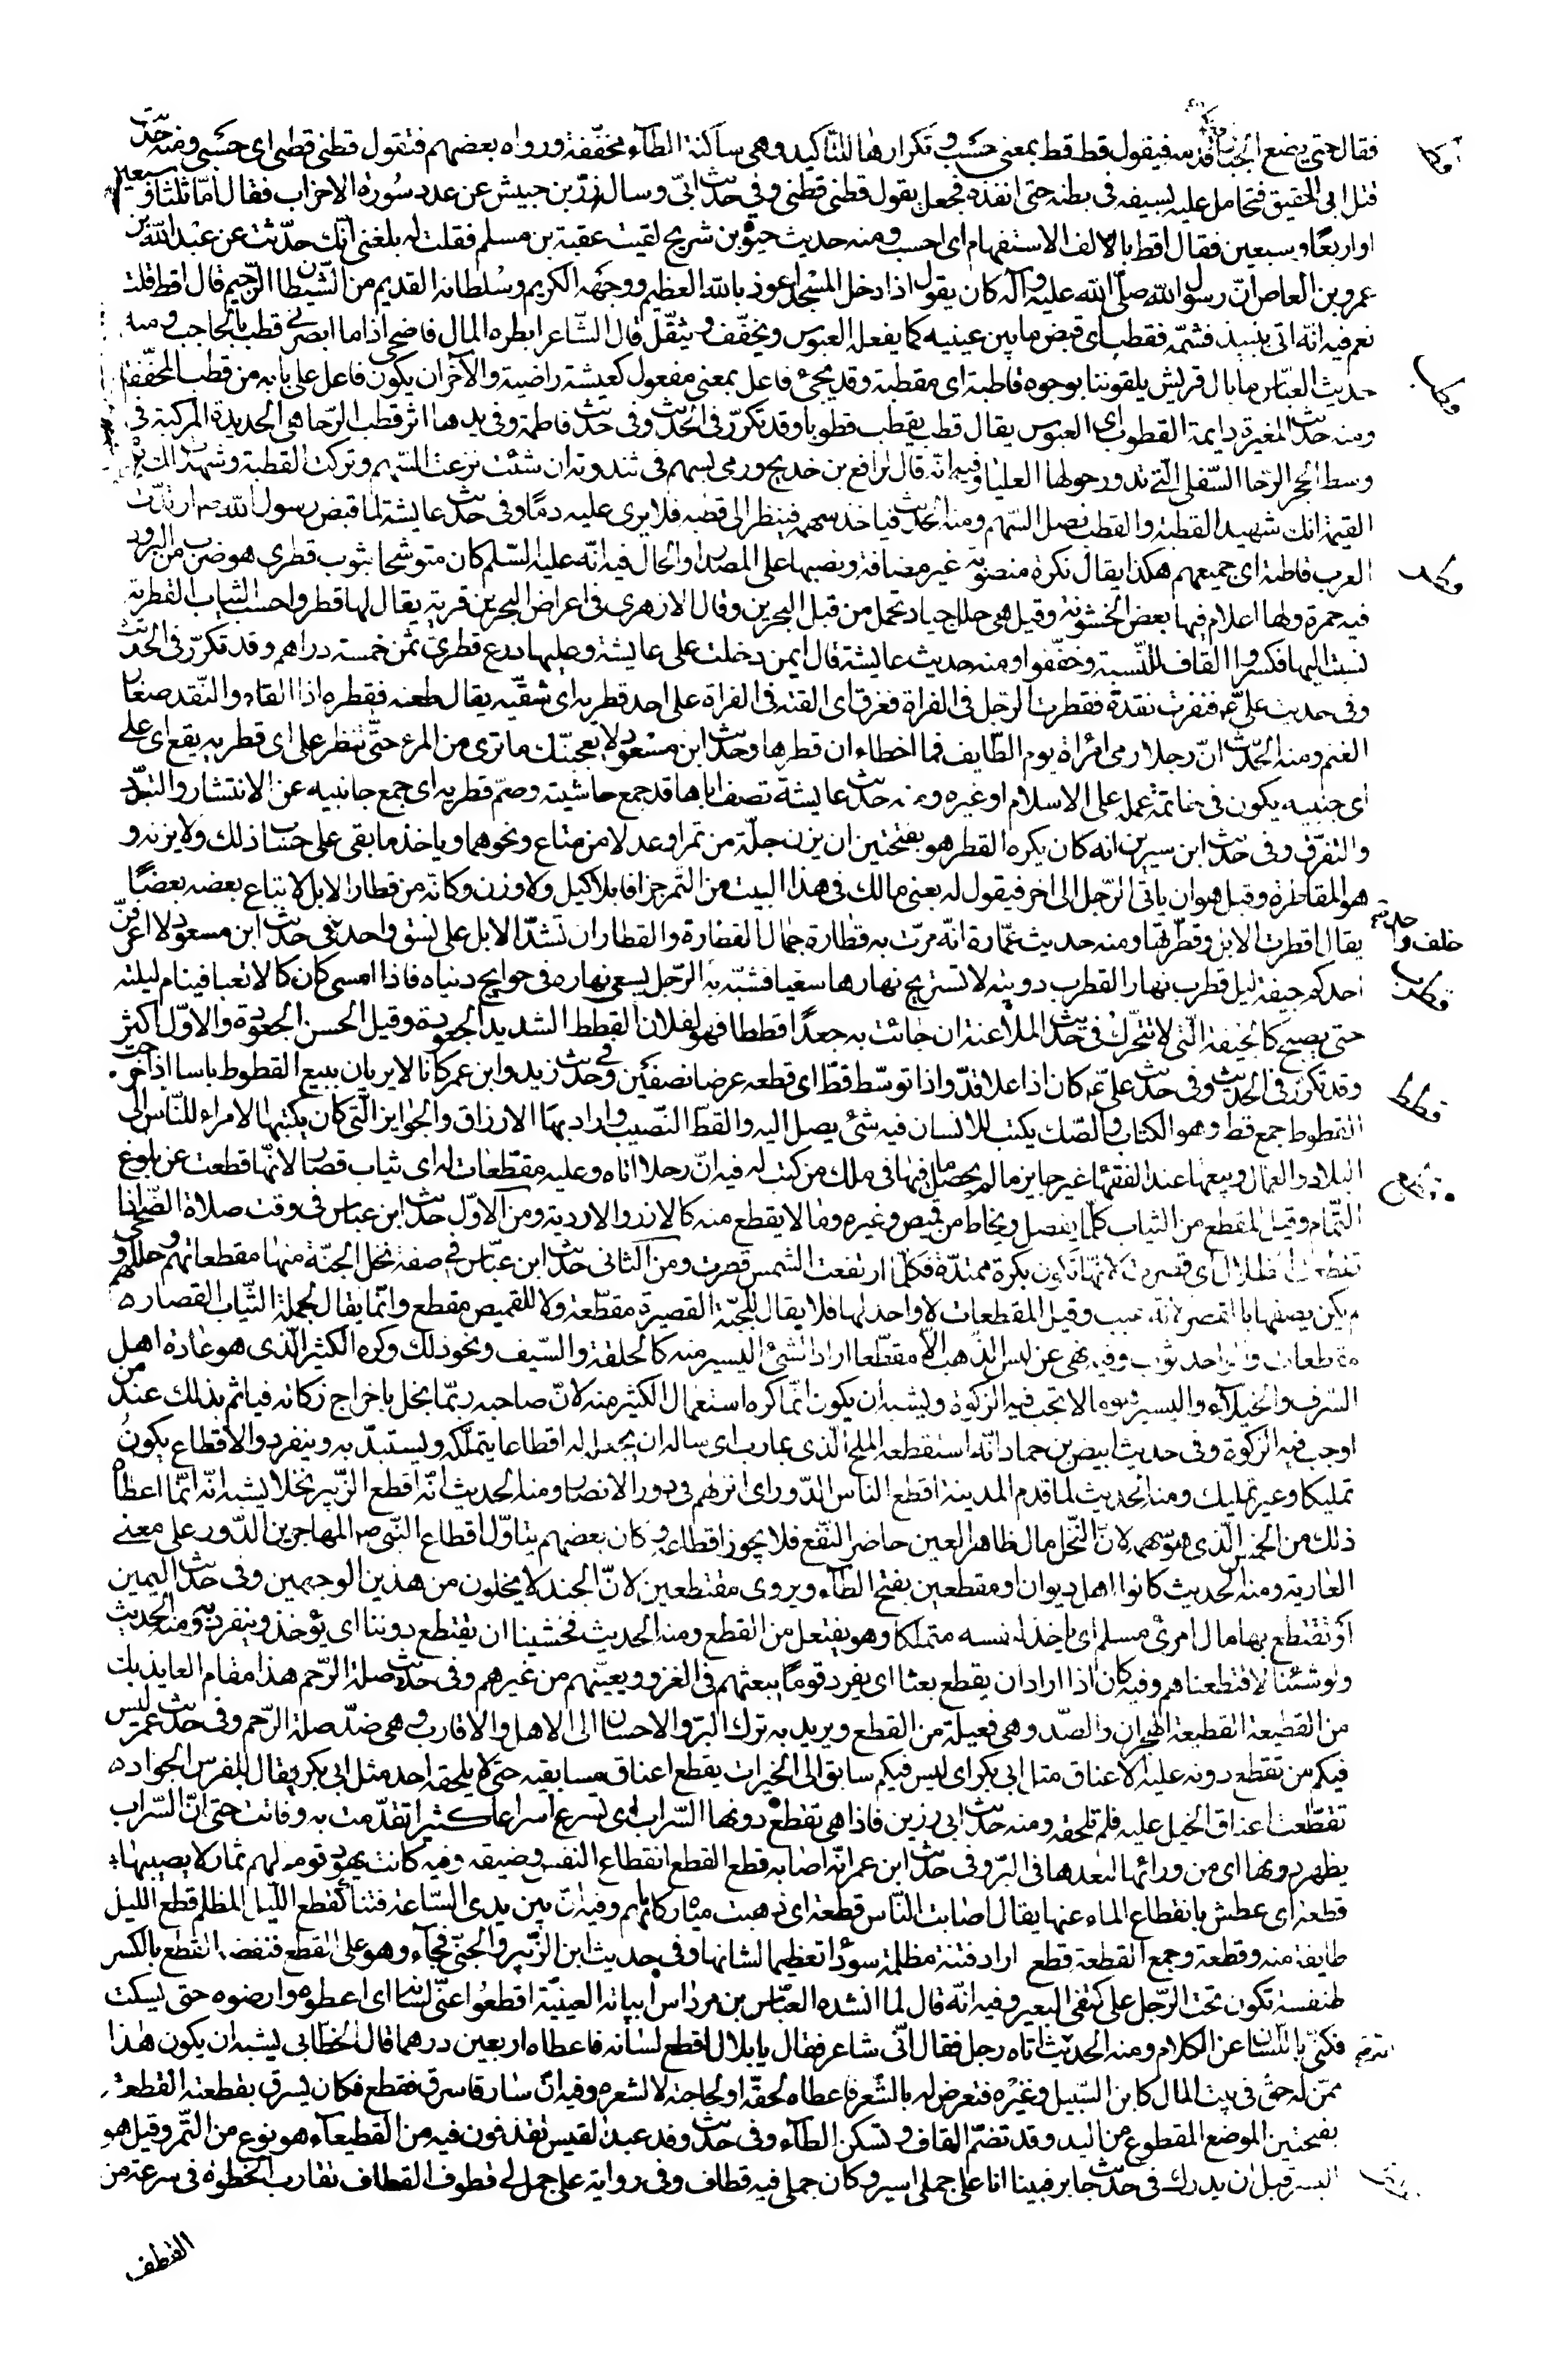 فقال حتى يضع الجبّار قدمه فيقول قط قط بمعنى حسب وتكرارها للتاكيد وهى ساكنة الطآء مخفّفة ورواه بعضهم فتقول قطنى قطنى اى حسبى ومنه حديث
قتل ابى الحقيق فتحامل عليه بسيفه فى بطنه حتى انفذه فجعل يقول قطنى قطنى وفى حديث ابىّ وسال زرّ بن حبيش عن عدد سورة الاحزاب فقال امّا ثلثا وسبعين
او اربعًا وسبعين فقال اقط بالالف الاستفهام اى احسب ومنه حديث حيوة بن شريح لقيت عقبة بن مسلم فقلت له بلغنى انّك حدّثت عن عبد الله بن
عمرو بن العاص انّ رسول الله صلى الله عليه وآله كان يقول اذا دخل المسجد اعوذ بالله العظيم ووجهه الكريم وسلطانه القديم من الشيطان الرجيم قال اقط قلت
نعم فيه انه اتى بنبيذ فشمّه فقطب اى قبض ما بين عينيه كما يفعله العبوس ويخفّف ويثقّل قال الشاعر ابطره المال فاضحى اذا ما ابصرنى قطب بالحاجب ومنه
حديث العبّاس ما بال قريش يلقوننا بوجوه قاطبة اى مقطبة وقد يجئ فاعل بمعنى مفعول كعيشة راضية والآخر ان يكون فاعل على بابه من قطب المخفّفة
ومنه حديث المغيرة دايمة القطوب اى العبوس يقال قطب يقطب قطوبا وقد تكرّر فى الحديث وفى حديث فاطمة وفى يدها اثر قطب الرّحا هى الحديدة المركبة فى
وسط حجر الرّحا السّفلى التى تدور حولها العليا وفيه انّه قال لرافع بن خديج ورمى بسهم فى ثندوته ان شئت نزعت السّهم وتركت القطبة وشهدت لك يوم
القيمة انك شهيد القطبة والقطب نصل السّهم ومنه الحديث فياخذ سهمه فينظر الى قطبه فلا يرى عليه دمًا وفى حديث عايشة لما قبض رسول الله صم ارتدّت
العرب قاطبة اى جميعهم هكذا يقال نكرة منصوبة غير مضافة ونصبها على المصدر او الحال فيه انّه عليه السّلم كان متوشحا بثوب قطرى هو ضرب من البرود
فيه حمرة ولها اعلام فيها بعض الخشونة وقيل هى حلل جياد تحمل من قبل البحرين وقال الازهرى فى اعراض البحرين قرية يقال لها قطر واحسب الثياب القطرية
نسبت اليها فكسروا القاف للنّسبة وخفّفوا ومنه حديث عايشة قال ايمن دخلت على عايشة وعليها درع قطرى ثمن خمسة دراهم وقد تكرّر فى الحديث
وفى حديث علىّ عم فنفرت نقدة فقطرت الرّجل فى الفراة فغرق اى القته فى الفراة على احد قطريه اى شقّيه يقال طعنه فقطره اذا القاه والنّقد صغار
الغنم ومنه الحديث انّ رجلا رمى امراة يوم الطّايف فما اخطاء ان قطرها وحديث ابن مسعود لا يعجبنّك ما ترى من المرء حتّى تنظر على اى قطريه يقع اى على
اى جنبيه يكون فى خاتمة عمله على الاسلام او غيره ومنه حديث عايشة تصف اباها قد جمع حاشيته وضمّ قطريه اى جمع جانبيه عن الانتشار والتبدّد
والتفرّق وفى حديث ابن سيرين انه كان يكره القطر هو بفتحتين ان يزن جلّة من تمر او عدلا من متاع ونحوهما وياخذ ما بقى على حساب ذلك ولا يزنه و
هو المقاطرة وقيل هو ان ياتى الرّجل الى اخر فيقول له بعنى مالك فى هذا البيت من التّمر جزافا بلا كيل ولا وزن وكانّه من قطار الابل لاتباع بعضه بعضًا
يقال اقطرت الابل وقطّرتها ومنه حديث عمّارة انّه مرّت به قطارة جمال القطارة والقطار ان تشدّ الابل على نسق واحد فى حديث ابن مسعود لا اعرفنّ
احدكم جيفة ليل قطرب نهار القطرب دويبّة لا تستريح نهارها سعيا فشبّه به الرّجل يسعى نهاره فى حوايج دنياه فاذا امسى كان كالا تعبا فينام ليلته
حتى يصبح كالجيفة الّتى لا تتحرّك فى حديث الملاعنة ان جائت به جعدًا قططا فهو لفلان القطط الشديد الجعودة وقيل الحسن الجعودة والاوّل اكثر
وقد تكرّر فى الحديث وفى حديث علىّ عم كان اذا علا قدّ واذا توسّط قطّ اى قطعه عرضا نصفين وفى حديث زيد وابن عمر كانا لا يريان ببيع القطوط باسا اذا خرجت
القطوط جمع قط وهو الكتاب والصّك يكتب للانسان فيه شئ يصل اليه والقطّ النّصيب واراد بها الارزاق والجوايز الّتى كان يكتبها الامراء للنّاس الى
البلاد والعمال وبيعها عند الفقهاء غير جايز ما لم يحصل ما فيها فى ملك من كتب له فيه انّ رجلا اتاه وعليه مقطّعات له اى ثياب قصار لانّها قطعت عن بلوغ
التّمام وقيل المقطع من الثياب كلّ ما يفصل ويخاط من قميص وغيره وما لا يقطع منه كالازر والاردية ومن الاوّل حديث ابن عباس فى وقت صلاة الضّحى اذا
تقطعت الظلال اى قصرت لانّها تكون بكرة ممتدّة فكلّما ارتفعت الشمس قصرت ومن الثانى حديث ابن عبّاس فى صفة نخل الجنّة منها مقطعاتهم وحللهم و
لم يكن يصفها بالقصر لانّه عيب وقيل المقطعات لا واحد لها فلا يقال للجبّة القصيرة مقطّعة ولا للقميص مقطع وانّما يقال لجملة الثّياب القصار
مقطعات والواحد ثوب وفيه نهى عن لبس الذّهب الّا مقطّعا اراد الشئ اليسير منه كالحلقة والسّيف ونحو ذلك وكره الكثير الّذى هو عادة اهل
السّرف والخيلآء واليسير هو ما لا تجب فيه الزكوة ويشبه ان يكون انّما كره استعمال الكثير منه لانّ صاحبه ربّما بخل باخراج زكاته فياثم بذلك عند من
اوجب فيه الزكوة وفى حديث ابيض بن حماد انّه استقطعه الملح الّذى بمارب اى ساله ان يجعل له اقطاعا يتملّكه ويستبدّ به وينفرد والاقطاع يكون
تمليكا وغير تمليك ومنه الحديث لما قدم المدينة اقطع الناس الدّور اى انزلهم فى دور الانصار ومنه الحديث انّه اقطع الزّبير نخلا يشبه انّه انّما اعطاه
ذلك من الخمس الّذى هو سهمه لانّ النّخل مال ظاهر العين حاضر النفع فلا يجوز اقطاعه وكان بعضهم يتاوّل اقطاع النّبى صم المهاجرين الدّور على معنى
العارية ومنه الحديث كانوا اهل ديوان او مقطعين بفتح الطآء ويروى مقتطعين لانّ الجند لا يخلون من هذين الوجهين وفى حديث اليمين
او تقتطع بها مال امرئ مسلم اى ياخذه لنفسه متملكا وهو يفتعل من القطع ومنه الحديث فخشينا ان يقتطع دوننا اى يؤخذ وينفرد به ومنه الحديث
ولو شئنا لاقتطعناهم وفيه كان اذا اراد ان يقطع بعثا اى يفرد قومًا يبعثهم فى الغزو ويعيّنهم من غيرهم وفى حديث صلة الرّحم هذا مقام العايذ بك
من القطيعة القطيعة الهجران والصّد وهى فعيلة من القطع ويريد به ترك البرّ والاحسان الى الاهل والاقارب وهى ضدّ صلة الرّحم وفى حديث عمر ليس
فيكم من تقطع دونه عليه الاعناق مثل ابى بكر اى ليس فيكم سابق الى الخيرات يقطع اعناق مسابقيه حتى لا يلحقه احد مثل ابى بكر يقال للفرس الجواد
تقطّعت اعناق الخيل عليه فلم تلحقه ومنه حديث ابى رزين فاذا هى تقطع دونها السّراب اى تسرع اسراعا كثيرا تقدّمت به وفاتت حتى انّ السّراب
يظهر دونها اى من ورائها لبعدها فى البرّ وفى حديث ابن عمر انّه اصابه قطع القطع انقطاع النفس وضيقه وفيه كانت يهود قوم لهم ثمار لا يصيبها
قطعة اى عطش بانقطاع الماء عنها يقال اصابت النّاس قطعة اى ذهبت مياه ركاياهم وفيه انّ بين يدى السّاعة فتنا كقطع اللّيل المظلم قطع الليل
طايفة منه وقطعة وجمع القطعة قطع اراد فتنة مظلمة سوداء تعظيما لشانها وفى حديث ابن الزّبير والجنّى فجآء وهو على القطع فنفضه القطع بالكسر
طنفسة تكون تحت الرّحل على كتفى البعير وفيه انّه قال لما انشده العبّاس بن مرداس ابياته العينيّة اقطعوا عنّى لسانه اى اعطوه وارضوه حتى يسكت
فكنّى باللّسان عن الكلام ومنه الحديث اتاه رجل فقال انّى شاعر فقال يا بلال اقطع لسانه فاعطاه اربعين درهما قال الخطّابى يشبه ان يكون هذا
ممّن له حقّ فى بيت المال كابن السّبيل وغيره فتعرض له بالشّعر فاعطاه لحقّه او لحاجته لا لشعره وفيه انّ سارقا سرق فقطع فكان يسرق بقطعته القطعة
بفتحتين الموضع المقطوع من اليد وقد تضمّ القاف وتسكن الطآء وفى حديث وفد عبد القيس تقذفون فيه من القطيعآء هو نوع من التّمر وقيل هو
البسر قبل ان يدرك فى حديث جابر فبينا انا على جملى اسير وكان جملى فيه قطاف وفى رواية على جمل لى قطوف القطاف تقارب الخطوة فى سرعة من
القطف
قطب
قطر
خلف واحد منه
قطرب
قطط
قطع